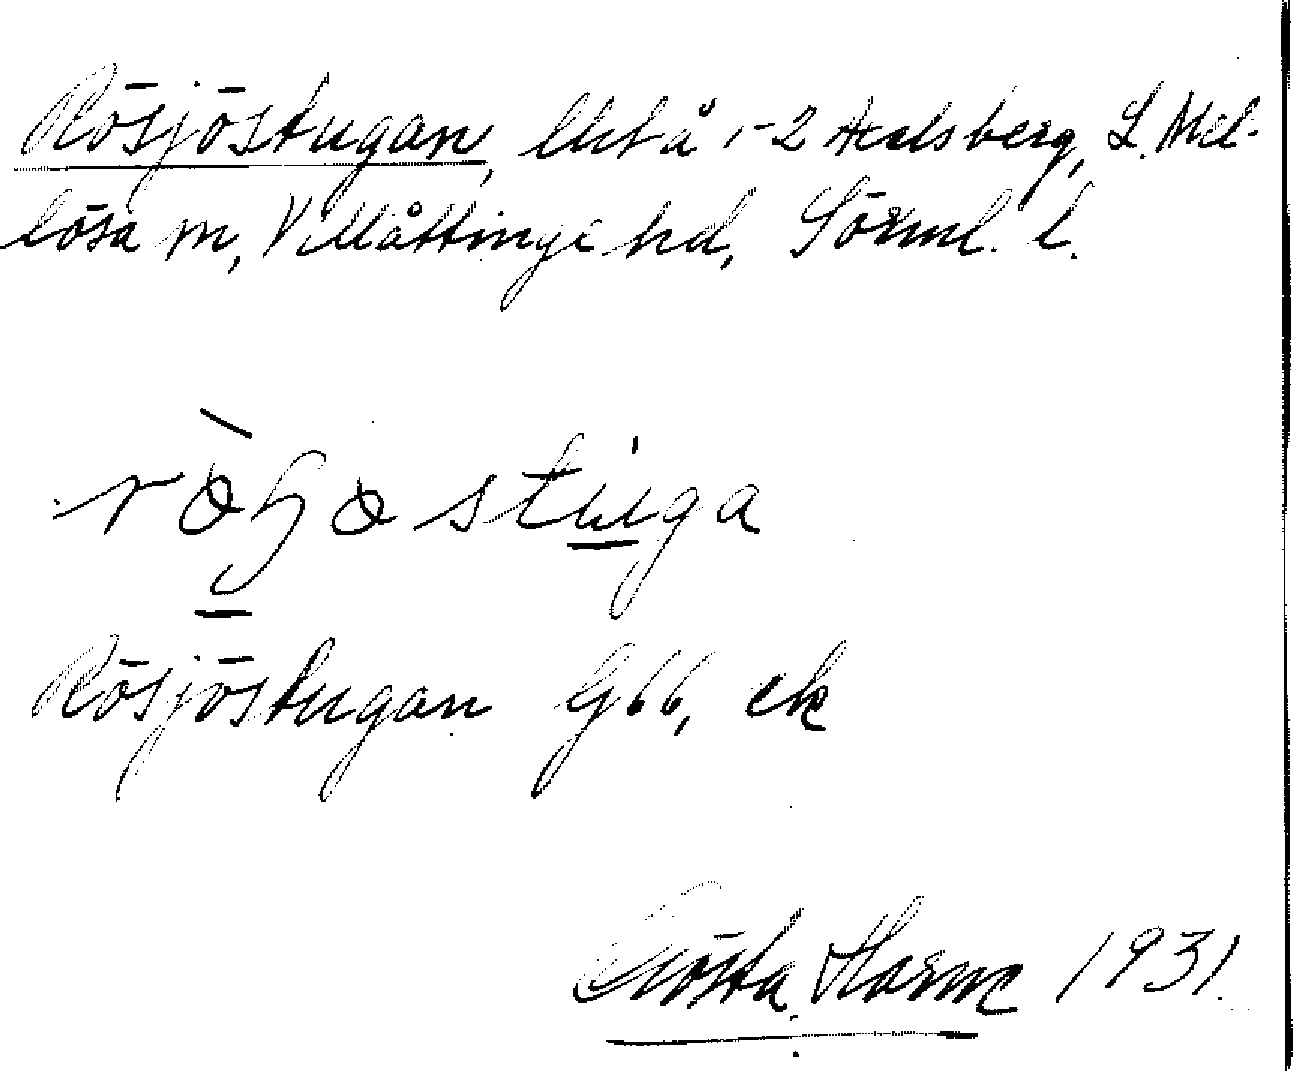 Rösjöstugan, lht å 1-2 Hedsberg, L. Mel-
lösa sn, Villåttinge hd, Sörml. l.
stuga
Rösjöstugan G 66, ek
Gösta Horm 1931.